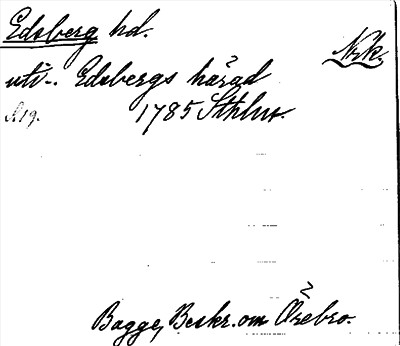 Edsberg hd.
Nrk.
uti-. Edsbergs härad
1785 Sthlm.
Bagge, Beskr. om Örebro.